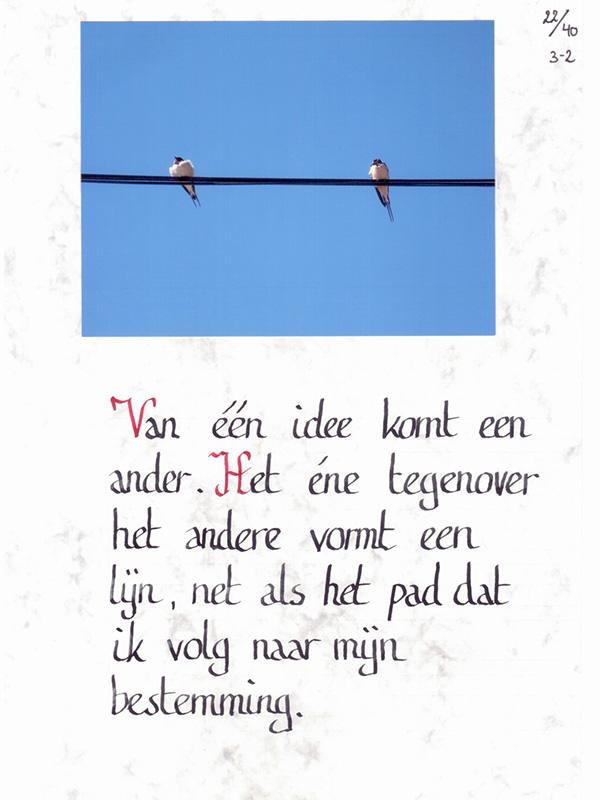 22/40
3-2
Van één idee komt een
ander. Het éne tegenover
het andere vormt een
lijn, net als het pad dat
ik volg naar mijn
bestemming.